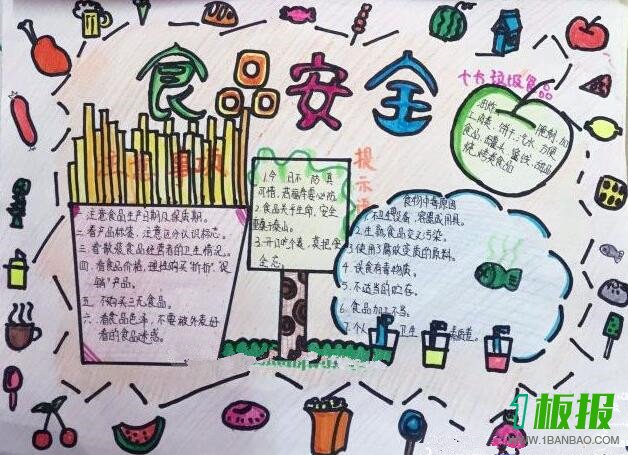 食品安全
十大垃圾食品
注意事项
提示语
油炸 腌制 加
工肉类 饼干 汽水 方便
食品 罐头 蜜饯 甜品
烧烤类食品
一、注意食品生产日期及保质期。
二、看产品标签,注意区分认识标志。
三、看散装食品经营者的卫生情况。
四、看食品价格,理性购买“打折”“促
销”产品。
五、不购买三无食品。
六、看食品色泽,不要被外表好
看的食品迷惑。
1.今日不防具
2.食品关乎生命,安全
重于泰山。
3.开口吃外卖,莫把保
食物中毒原因
1.不卫生设备,容器或用具。
2.生熟食品交叉污染。
3.使用了腐败变质的原料。
4.误食有毒物质。
5.不适当的贮存。
6.食品加工不当。
7.个人卫生素质差。
1板报
WWW.1BANBAO.COM